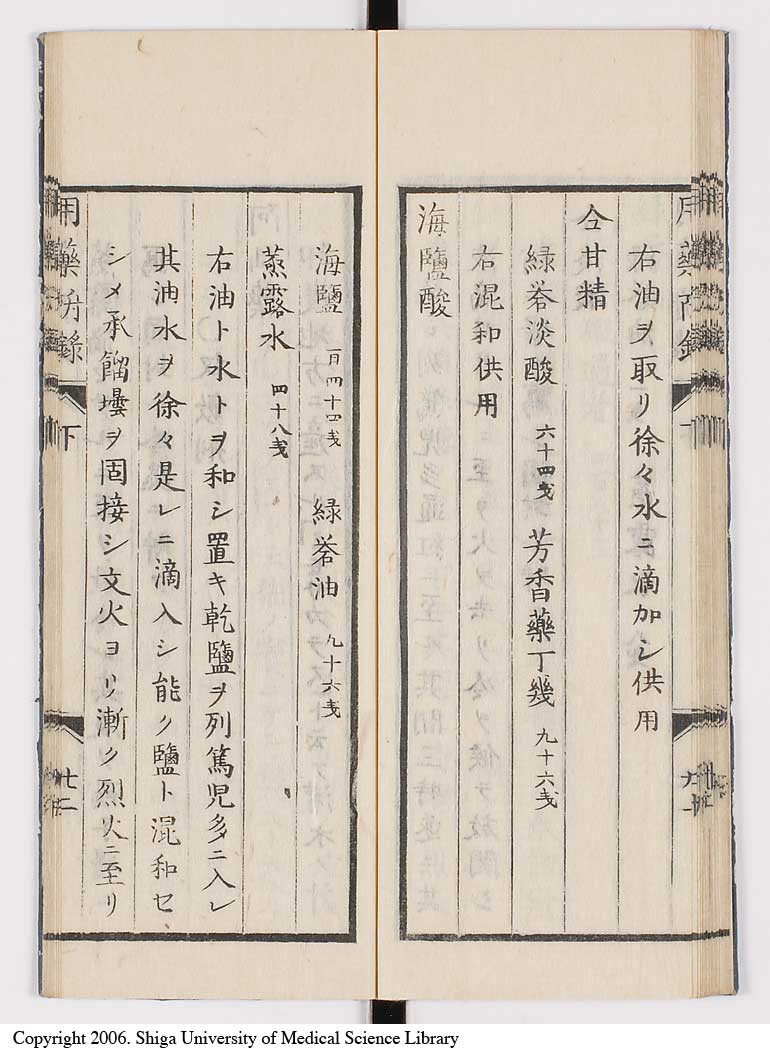 右油ヲ取リ徐々水ニ滴加シ供用
仝甘精
緑礬淡酸 六十四戔 芳香藥丁幾 九十六戔
右混和供用
海鹽酸
海鹽 百四十四戔 緑礬油 九十六戔
蒸露水 四十八戔
右油ト水トヲ和シ置キ乾鹽ヲ列篤児多ニ入レ
其油水ヲ徐々是レニ滴入シ能ク鹽ト混和セ
シメ承餾壜ヲ固接シ文火ヨリ漸ク烈火ニ至リ
用藥 録 下 七二
Copyright 2006. Shiga University of Medical Science Library